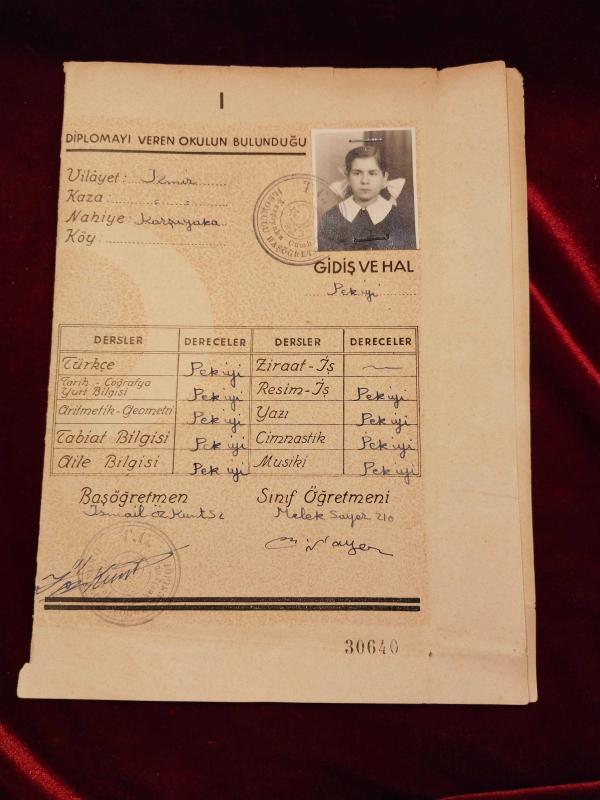 I
DİPLOMAYI VEREN OKULUN BULUNDUĞU
Vilâyet: İzmir
Kaza:
Nahiye: Karşıyaka
Köy:
T.C.
GİDİŞ VE HAL
Pek iyi
DERSLER DERECELER DERSLER DERECELER
Türkçe Pek iyi Ziraat-İş
Tarih - Coğrafya
Yurt Bilgisi Pek iyi Resim-İş Pek iyi
Aritmetik-Geometri Pek iyi Yazı Pek iyi
Tabiat Bilgisi Pek iyi Cimnastik Pek iyi
Aile Bilgisi Pek iyi Musiki Pek iyi
Başöğretmen Sınıf Öğretmeni
İsmail Özkunt Melek Sayer 210
T.C.
30640